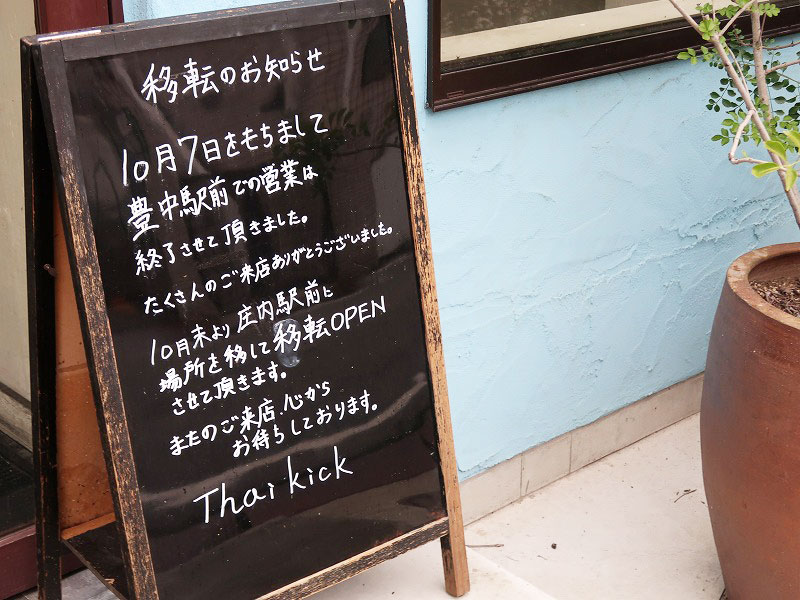 移転のお知らせ
10月7日をもちまして
豊中駅前での営業は
終了させて頂きました。
たくさんのご来店ありがとうございました。
10月末より庄内駅前に
場所を移して移転OPEN
させて頂きます。
またのご来店、心から
お待ちしております。
Thai kick